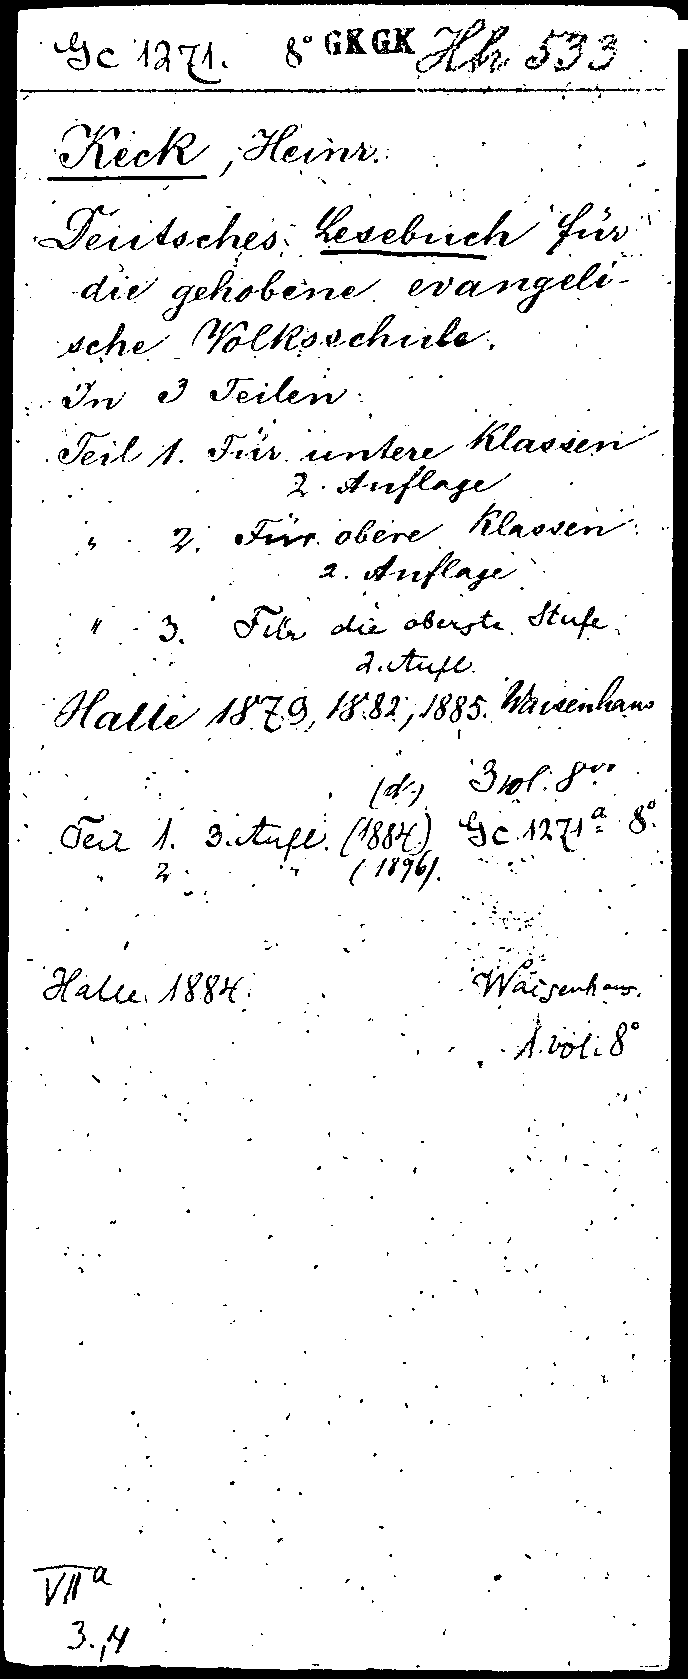 Gc 1271. 8° GK GK Hh 533
Keck, Heinr.
Deutsches Lesebuch für
die gehobene evangeli-
sche Volksschule.
In 3 Teilen.
Teil 1. Für untere Klassen
2. Auflage
" 2. Für obere Klassen
2. Auflage
" 3. Für die oberste Stufe.
2. Aufl.
Halle 1879, 1882, 1885. Waisenhaus
(d.) 3 vol. 8vo.
Teil 1. 3. Aufl. (1884.) Gc 1271a 8°.
" 2. " (1896).
Halle 1884. Waisenhaus.
1. vol. 8°
VII a
3.,4